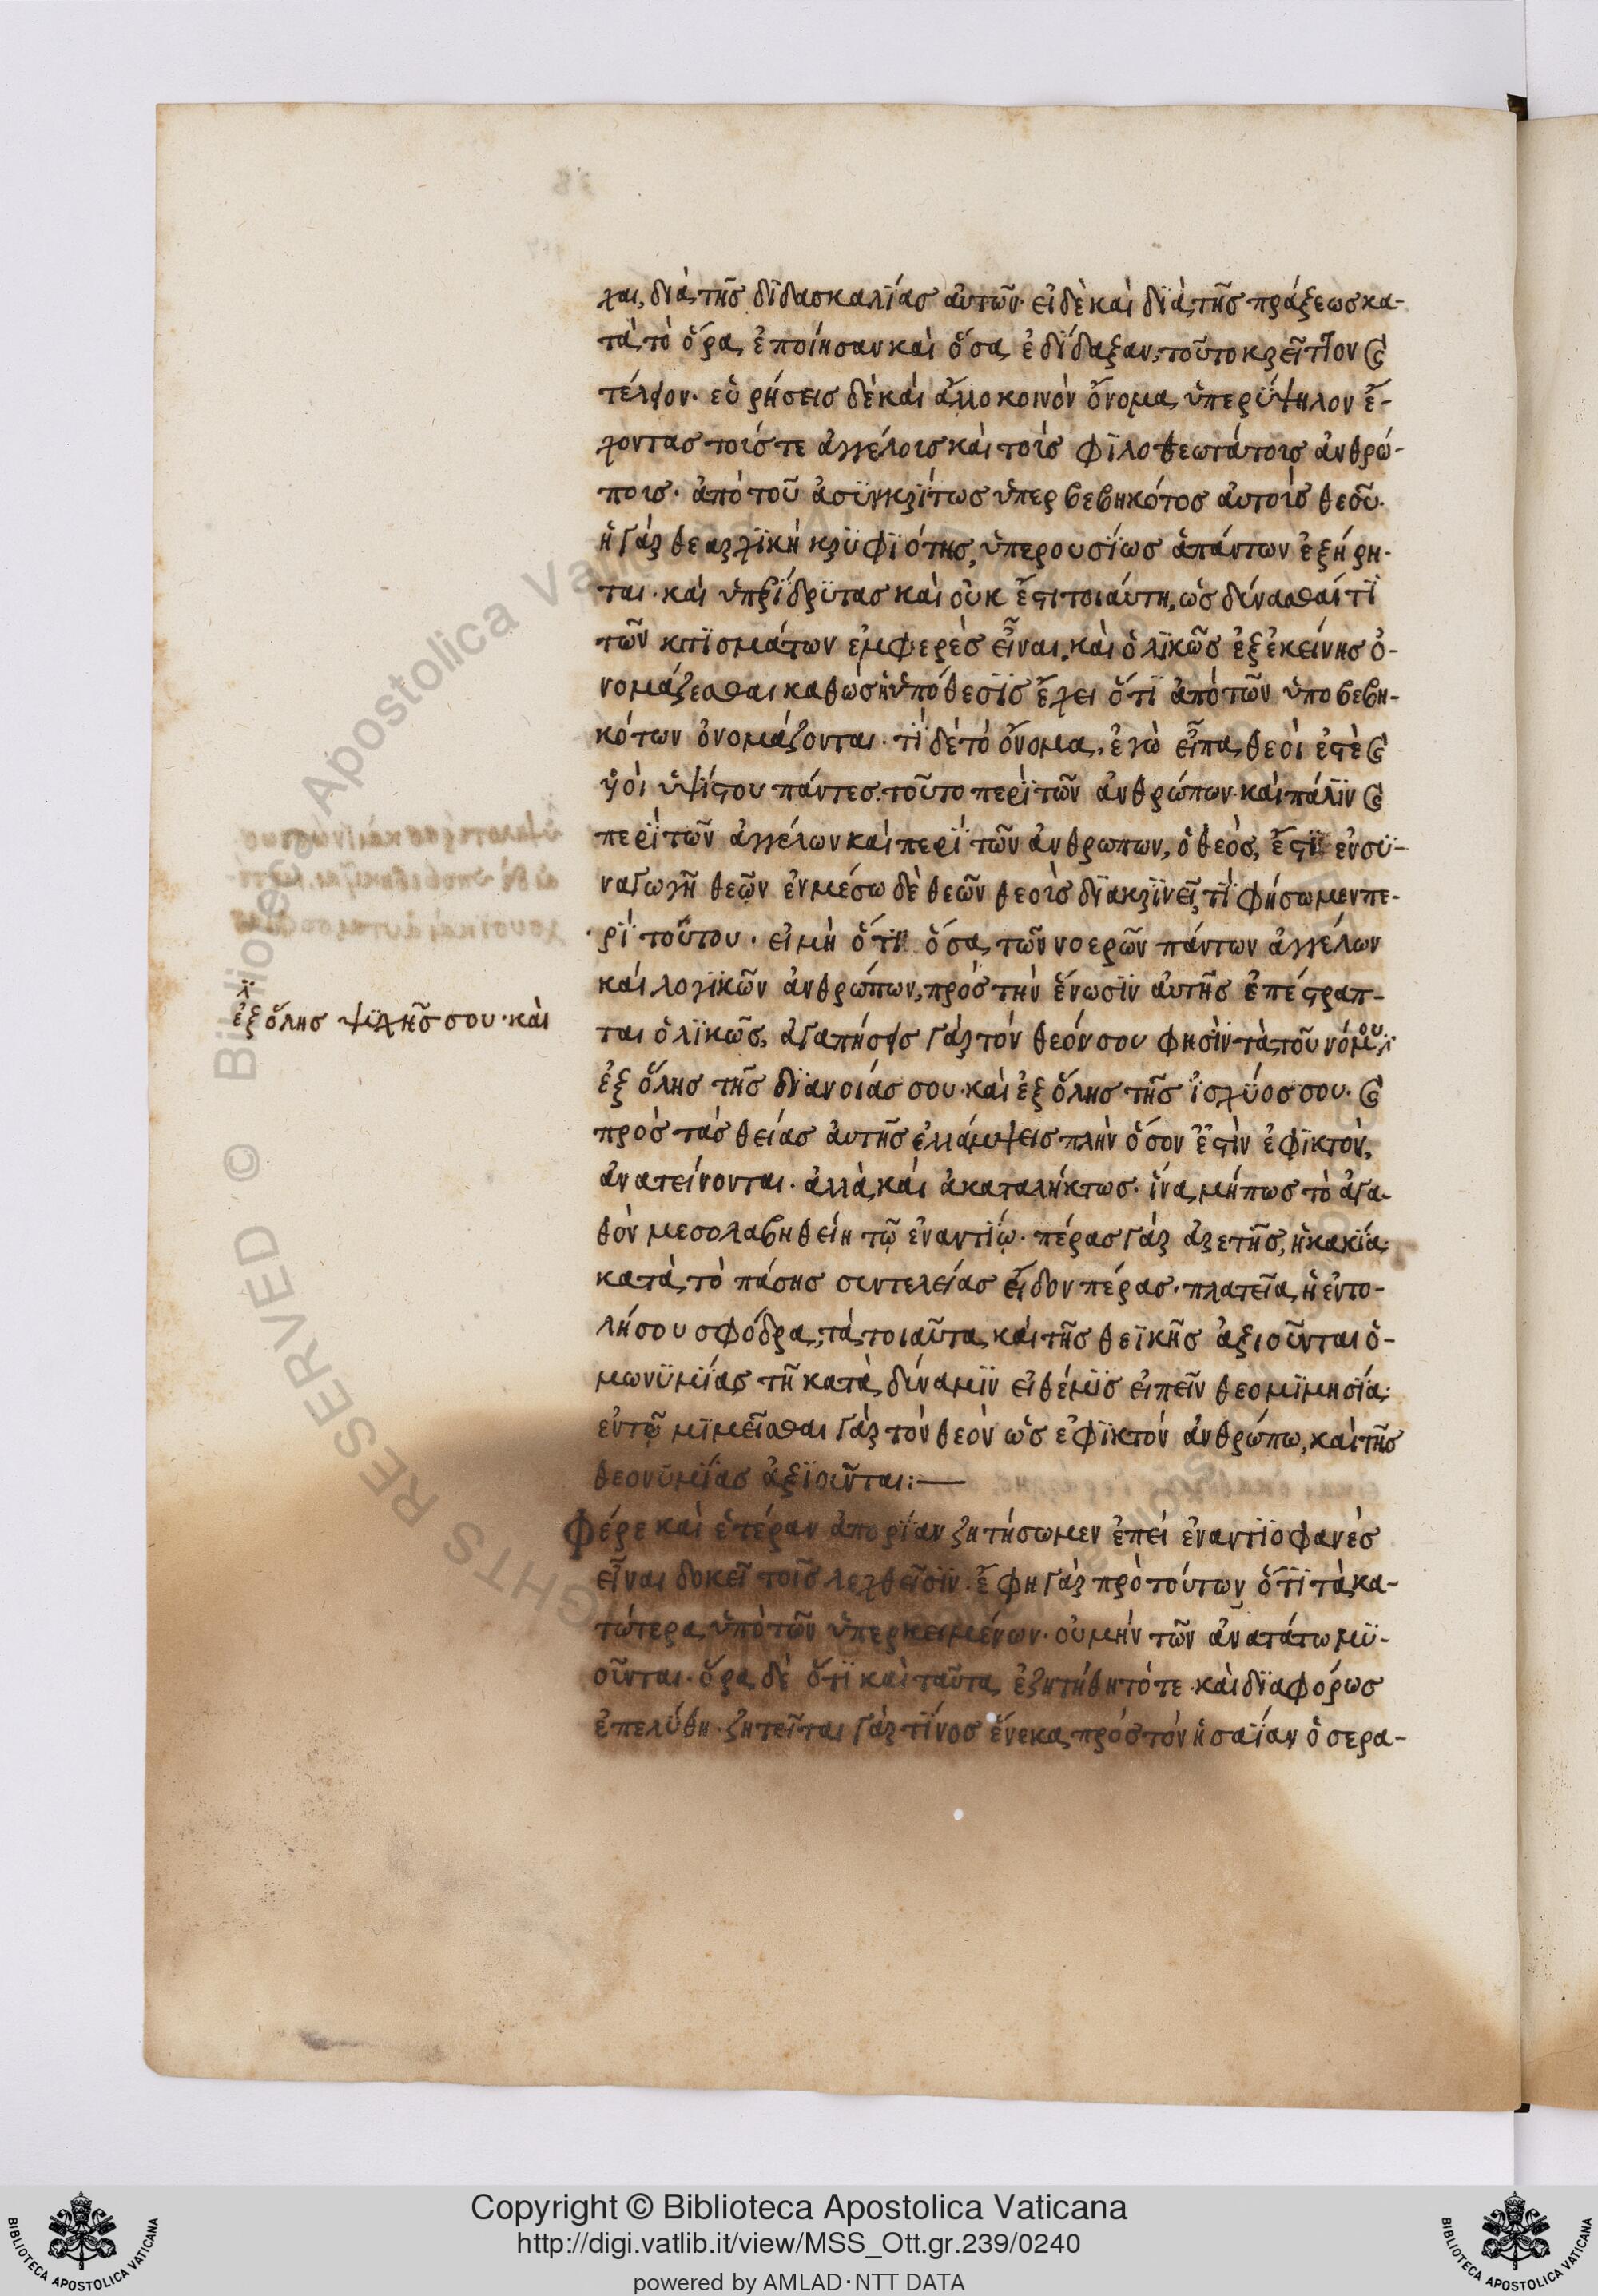 χαι, διὰ τῆς δϊδασκαλΐας αὐτῶν· εἰ δὲ καὶ δϊὰ τῆς πράξεως κα-
τὰ τὸ ὅρα, ἐποίησαν καὶ ὅσα ἐδΐδαξαν, τοῦτο κρεῖττον (καὶ)
τέλειον· εὑρήσεις δὲ καὶ ἄλλο κοινὸν ὄνομα ὑπερΰψηλον ἔ-
χοντας τοίς τε ἀγγέλοις καὶ τοίς φϊλοθεωτάτοις ἀνθρώ-
ποις· ἀπὸ τοῦ ἀσϋγκρΐτως ὑπερβεβηκότος αὐτοίς θεοῦ·
ἡ γὰρ θεαρχϊκὴ κρϋφϊότης, ὑπερουσΐως ἁπάντων ἐξήρη-
ται· καὶ ὑπερΐδρϋται καὶ οὐκ ἔστι τοιάυτη, ὡς δύνασθαί τϊ
τῶν κτϊσμάτων ἐμφερὲς εἶναι, καὶ ὁλϊκῶς ἐξ ἐκείνης ὀ-
νομάζεσθαι καθὼς ἡ ὑπόθεσϊς ἔχει ὅτϊ ἀπὸ τῶν ὑποβεβη-
κότων ὀνομάζονται· τΐ δὲ τὸ ὄνομα, ἐγὼ εἶπα θεοὶ ἐστὲ (καὶ)
ὑοὶ ὑψΐστου πάντες. τοῦτο περὶ τῶν ἀνθρώπων· καὶ πάλϊν (καὶ)
περὶ τῶν ἀγγέλων καὶ περὶ τῶν ἀνθρωπων, ὁ θεὸς ἔστϊ ἐν σϋ-
ναγωγῆ θεῶν ἐν μέσω δὲ θεῶν θεοὶς δϊακρϊνεῖ, τΐ φήσωμεν πε-
ρΐ τοῦτου· εἰ μὴ ὅτϊ ὅσα τῶν νοερῶν πάντων ἀγγέλων
καὶ λογϊκῶν ἀνθρώπων, πρὸς τὴν ἕνωσϊν αὐτῆς ἐπέστραπ-
ται ὁλϊκῶς, ἀγαπήσεις γὰρ τὸν θεόν σου φησὶν τὰ τοῦ νόμου
ἐξ ὅλης ψϋχῆς σου· καὶ
ἐξ ὅλης τῆς δϊανοίας σου· καὶ ἐξ ὅλης τῆς ἰσχΰος σου· (καὶ)
πρὸς τὰς θείας αὐτῆς ἐλλάμψεις πλὴν ὅσον ἐστὶν ἐφϊκτὸν,
ἀνατείνονται· ἀλλὰ καὶ ἀκαταλήκτως· ἵνα μήπως τὸ ἀγα-
θὸν μεσολαβηθείη τῷ ἐναντΐῳ· πέρας γὰρ ἀρετῆς, ἡ κακΐα·
κατὰ τὸ πάσης συντελείας εἶδον πέρας· πλατεῖα ἡ ἐντο-
λή σου σφόδρα, τὰ τοιαῦτα καὶ τῆς θεϊκῆς ἀξιοῦνται ὁ-
μωνϋμΐας τῆ κατὰ δύναμϊν εἰ θέμϊς εἰπεῖν θεομϊμησΐα·
ἐν τῷ μϊμεῖσθαι γὰρ τὸν θεὸν ὡς ἐφϊκτὸν ἀνθρώπω, καὶ τῆς
θεονϋμΐας ἀξϊοῦνται:—
Φέρε καὶ ἑτέραν ἀπορΐαν ζητήσωμεν ἐπεὶ ἐναντϊοφανὲς
εἶναι δοκεῖ τοῖς λεχθεῖσϊν· ἔφη γὰρ πρὸ τούτων ὅτϊ τὰ κα-
τώτερα ὑπὸ τῶν ὑπερκειμένων· οὐ μὴν τῶν ἀνατάτω μϋ-
οῦνται· ὅρα δὲ ὅτϊ καὶ ταῦτα ἐζητήθη τότε καὶ δϊαφόρως
ἐπελΰθη· ζητεῖται γὰρ τΐνος ἕνεκα πρὸς τὸν ἡσαΐαν ὁ σερα-
Copyright © Biblioteca Apostolica Vaticana
http://digi.vatlib.it/view/MSS_Ott.gr.239/0240
powered by AMLAD·NTT DATA